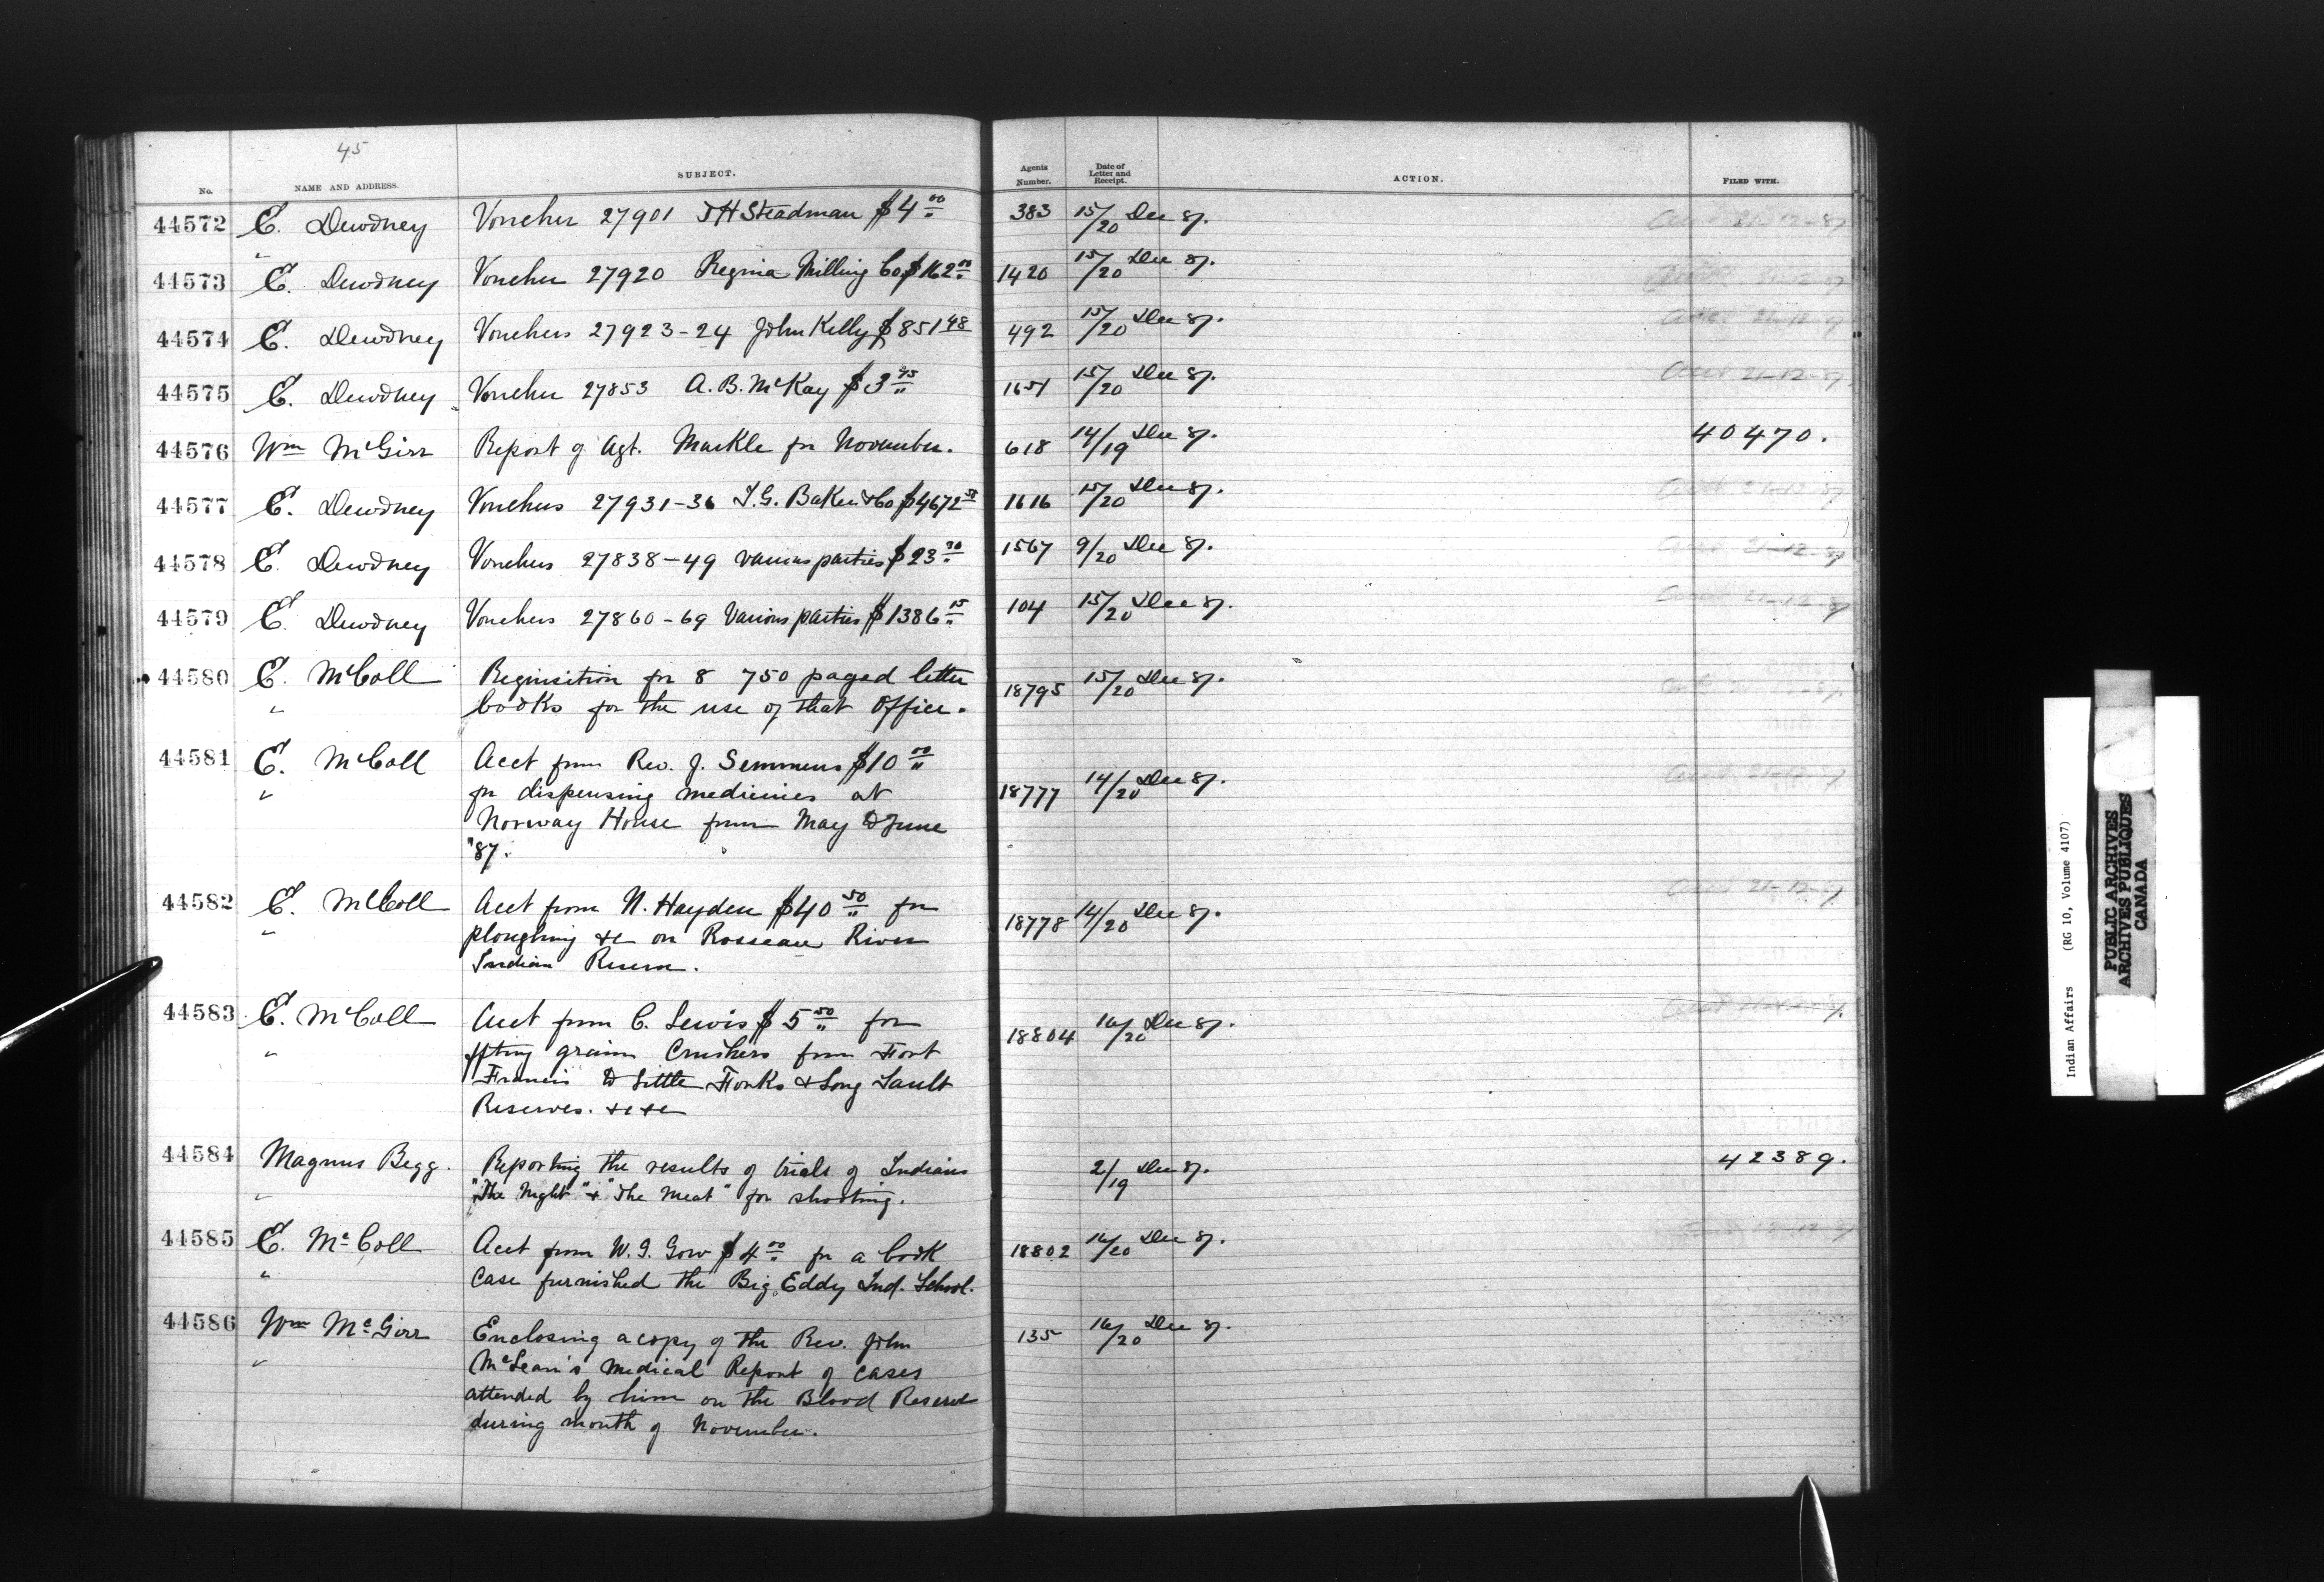 45
No. NAME AND ADDRESS. SUBJECT. Agents Number. Date of Letter and Receipt. ACTION. FILED WITH.
44572 E. Dewdney Voucher 27901 J H Steadman $4.00 383 15/20 Dec 87.
44573 E. Dewdney Voucher 27920 Regina Milling Co $162.00 1420 15/20 Dec 87.
44574 E. Dewdney Vouchers 27923-24 John Kelly $851.48 492 15/20 Dec 87.
44575 E. Dewdney Voucher 27853 A. B. McKay $3 1651 15/20 Dec 87. 21-12-87
44576 Wm McGirr Report of Agt. Markle for November. 618 14/19 Dec 87. 40470.
44577 E. Dewdney Vouchers 27931-36 I. G. Baker & Co $4672.58 1616 15/20 Dec 87. 21-12-87
44578 E. Dewdney Vouchers 27838-49 various parties $23 1567 9/20 Dec 87. 21-12-87
44579 E. Dewdney Vouchers 27860-69 Various parties $1386.15 104 15/20 Dec 87. 21-12-87
44580 E. McColl Requisition for 8 750 paged letter 18795 15/20 Dec 87.
" books for the use of that Office.
44581 E. McColl Acct from Rev. J. Semmens $10.00
" for dispensing medicines at 18777 14/20 Dec 87. 21-12-87
Norway House from May to June
"87.
44582 E. McColl Acct from N. Hayden $40.50 for 18778 14/20 Dec 87. 21-12-87
" ploughing &c on Rosseau River
Indian Reserve.
44583 E. McColl Acct from C. Lewis $5.50 for 18804 16/20 Dec 87.
" grain Crushers from Fort
Francis to Little Forks & Long Sault
Reserves. &c &c
44584 Magnus Begg. Reporting the results of trials of Indians 2/19 Dec 87. 42389.
" "The Night" & "The Meat" for shooting.
44585 E. McColl Acct from W. J. Gow $4.00 for a book 18802 16/20 Dec 87.
" Case furnished the Big Eddy Ind. School.
44586 Wm McGirr Enclosing a copy of the Rev. John 135 16/20 Dec 87.
" McLean's Medical Report of cases
attended by him on the Blood Reserve
during month of November.
Indian Affairs (RG 10, Volume 4107)
PUBLIC ARCHIVES
ARCHIVES PUBLIQUES
CANADA